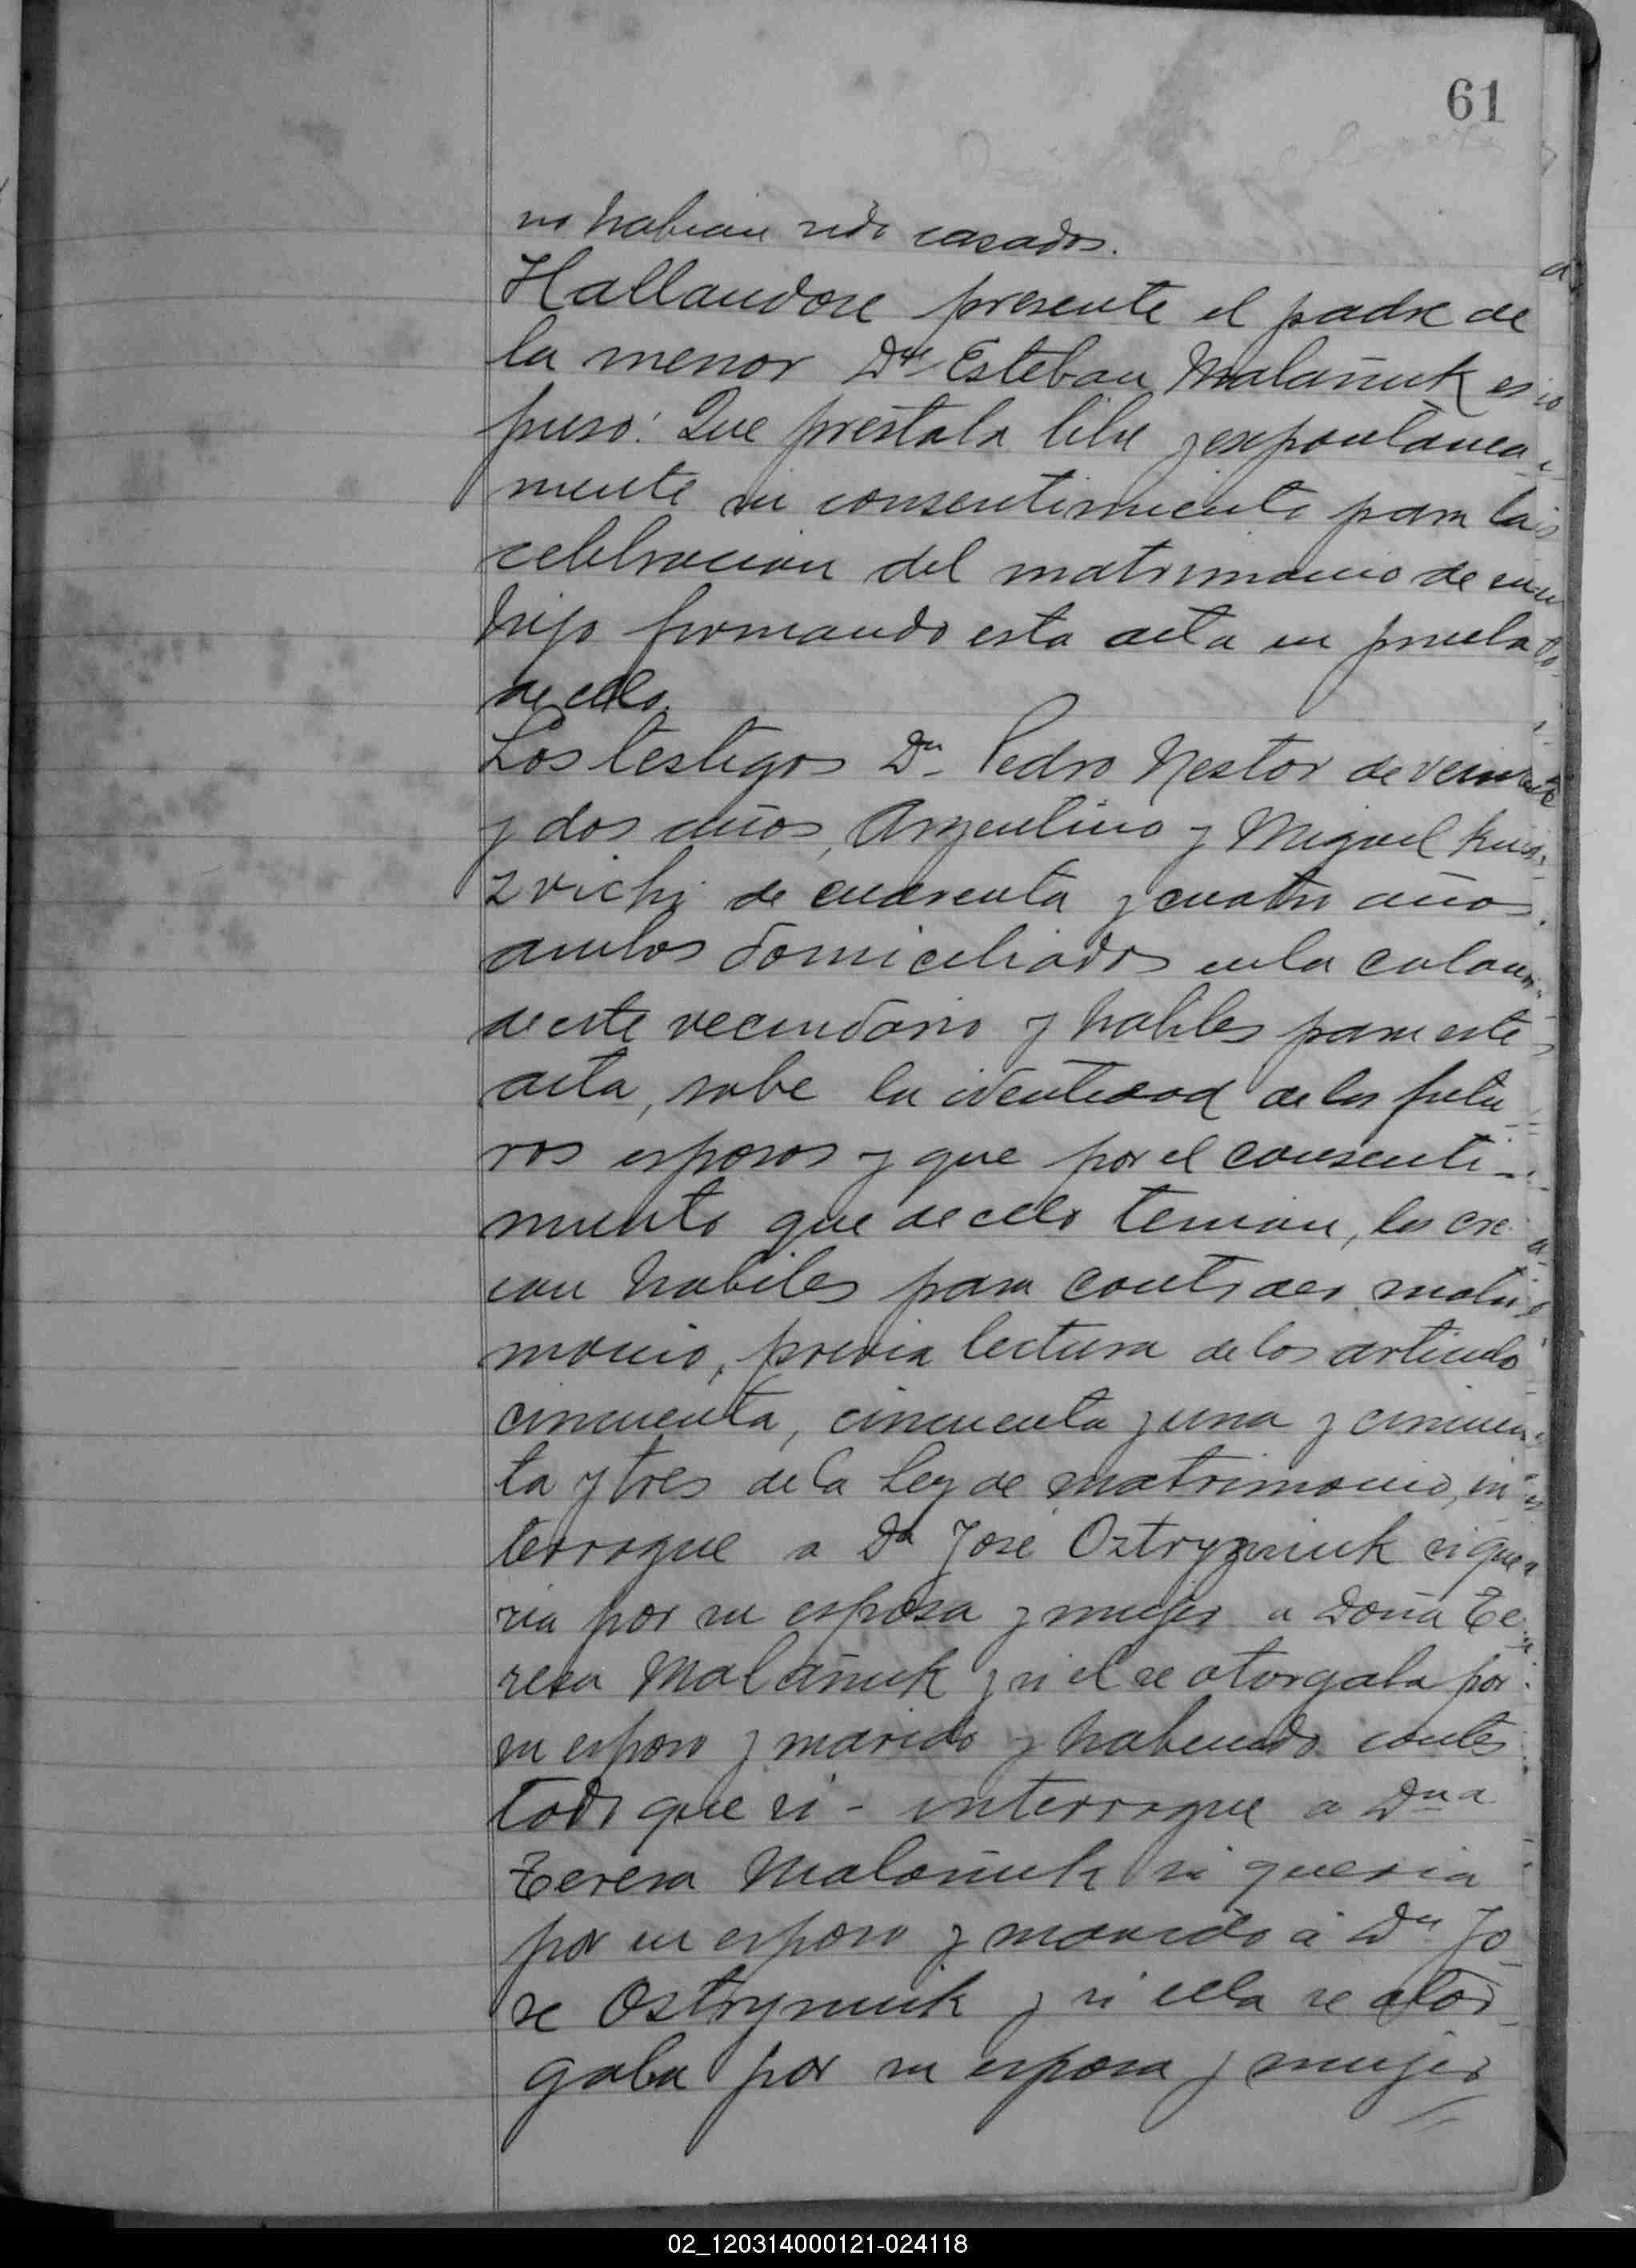 61
no habian sido casados.
Hallandose presente el padre de
la menor Dn Esteban Malañuk es
puso: Que prestaba libre y expontanea
mente su consentimiento para la
celebracion del matrimonio de su
hijo firmando esta acta en prueba
de ello.
Los testigos Dn Pedro Nestor de veinte
y dos años, Argentino y Miguel
zvichi de cuarenta y cuatro años
ambos domiciliados en la colonia
de este vecindario y habiles para este
acta, sabe la identidad de los futu
ros esposos y que por el consenti-
miento que de ello tenian, los cre
ian habiles para contraer matri
monio, previa lectura de los articulo
cincuenta, cincuenta y una y cincuen
ta y tres de la Ley de matrimonio, in
terrogue a Dn José Oztryzniuk si que
ria por su esposa y mujer a Doña Te
resa Malañuk y si el se otorgaba por
su esposo y marido y habiendo contes
tado que si - interrogue a Dna
Teresa Malañuk si queria
por su esposo y marido á Dn Jo
se Ostryniuk y si ella se otor
gaba por su esposa y mujer
02_120314000121-024118